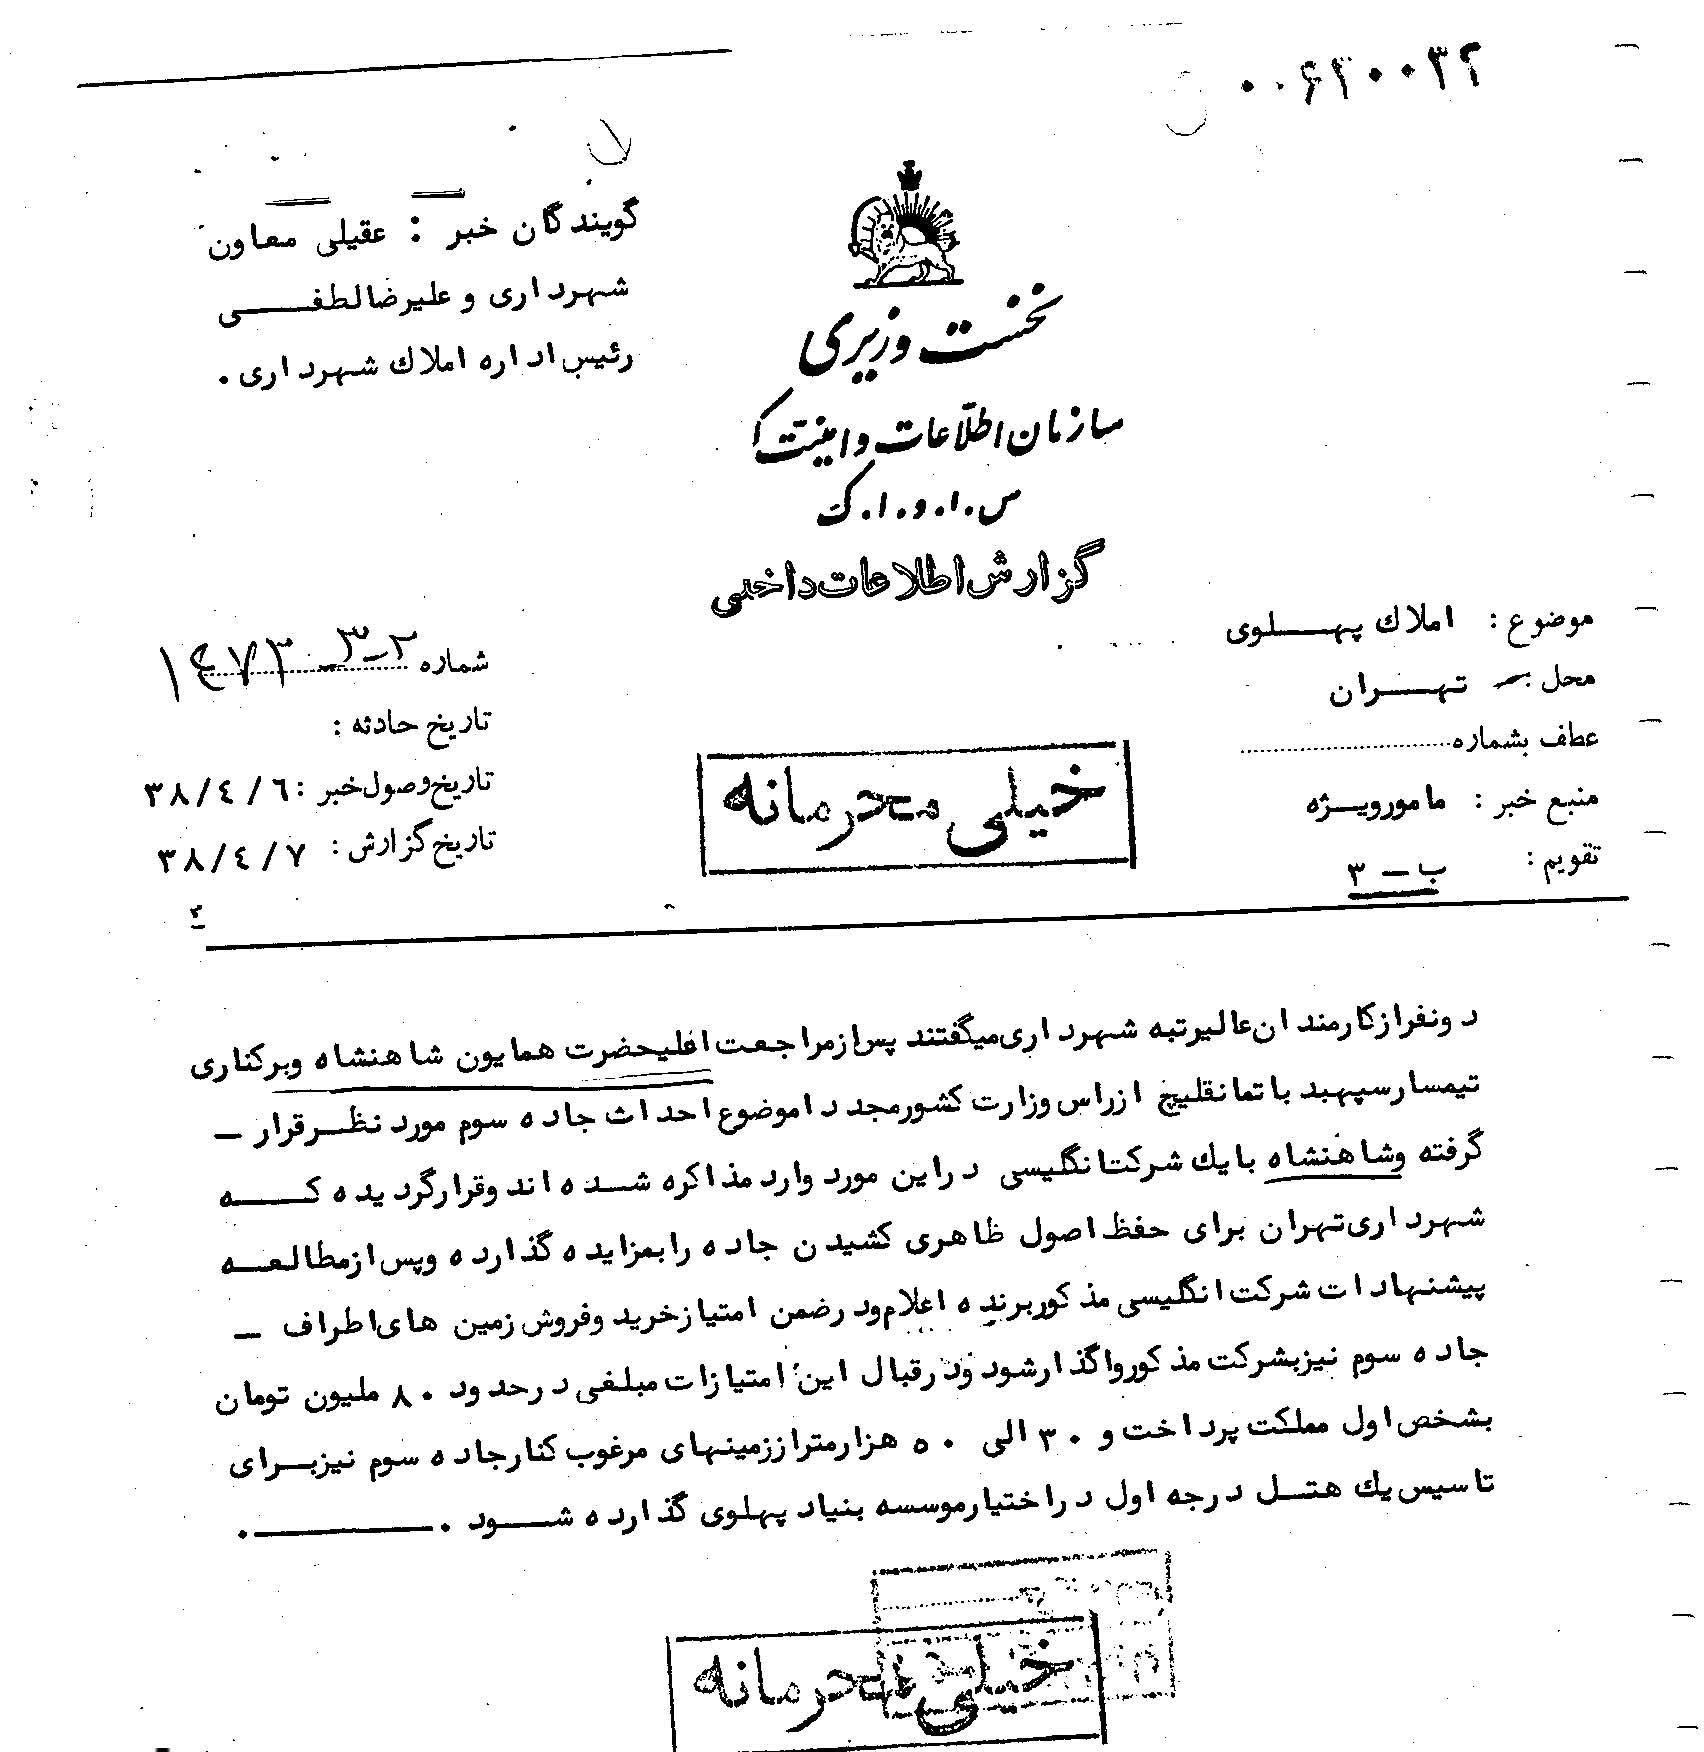 ۰۰۶۳۰۰۳۲
گویندگان خبر : عقیلی معاون
شهرداری و علیرضا لطفی
رئیس اداره املاك شهرداری .
نخست وزیری
سازمان اطلاعات و امنیت ک
س.ا.و.ا.ک
گزارش اطلاعات داخلی
موضوع : املاك پهلوی
محل تهران
عطف بشماره
منبع خبر : مامورویژه
تقویم : ب - ۳
شماره
تاریخ حادثه :
تاریخ وصول خبر : ۳۸/٤/٦
تاریخ گزارش : ۳۸/٤/۷
خیلی محرمانه
دونفرازکارمندان عالیرتبه شهرداری میگفتند پس ازمراجعت اعلیحضرت همایون شاهنشاه وبرکناری
تیمسارسپهبد باتمانقلیچ ازراس وزارت کشورمجددا موضوع احداث جاده سوم مورد نظرقرار -
گرفته وشاهنشاه بایك شرکت انگلیسی دراین مورد وارد مذاکره شده اند وقرارگردیده که
شهرداری تهران برای حفظ اصول ظاهری کشیدن جاده رابمزایده گذارده وپس ازمطالعه
پیشنهادات شرکت انگلیسی مذکوربرنده اعلام ودرضمن امتیازخرید وفروش زمین های اطراف -
جاده سوم نیزبشرکت مذکورواگذارشود ودرقبال این امتیازات مبلغی درحدود ۸۰ ملیون تومان
بشخص اول مملکت پرداخت و ۳۰ الی ۵۰ هزارمتراززمینهای مرغوب کنارجاده سوم نیزبرای
تاسیس یك هتل درجه اول دراختیارموسسه بنیاد پهلوی گذارده شود .
خیلی محرمانه